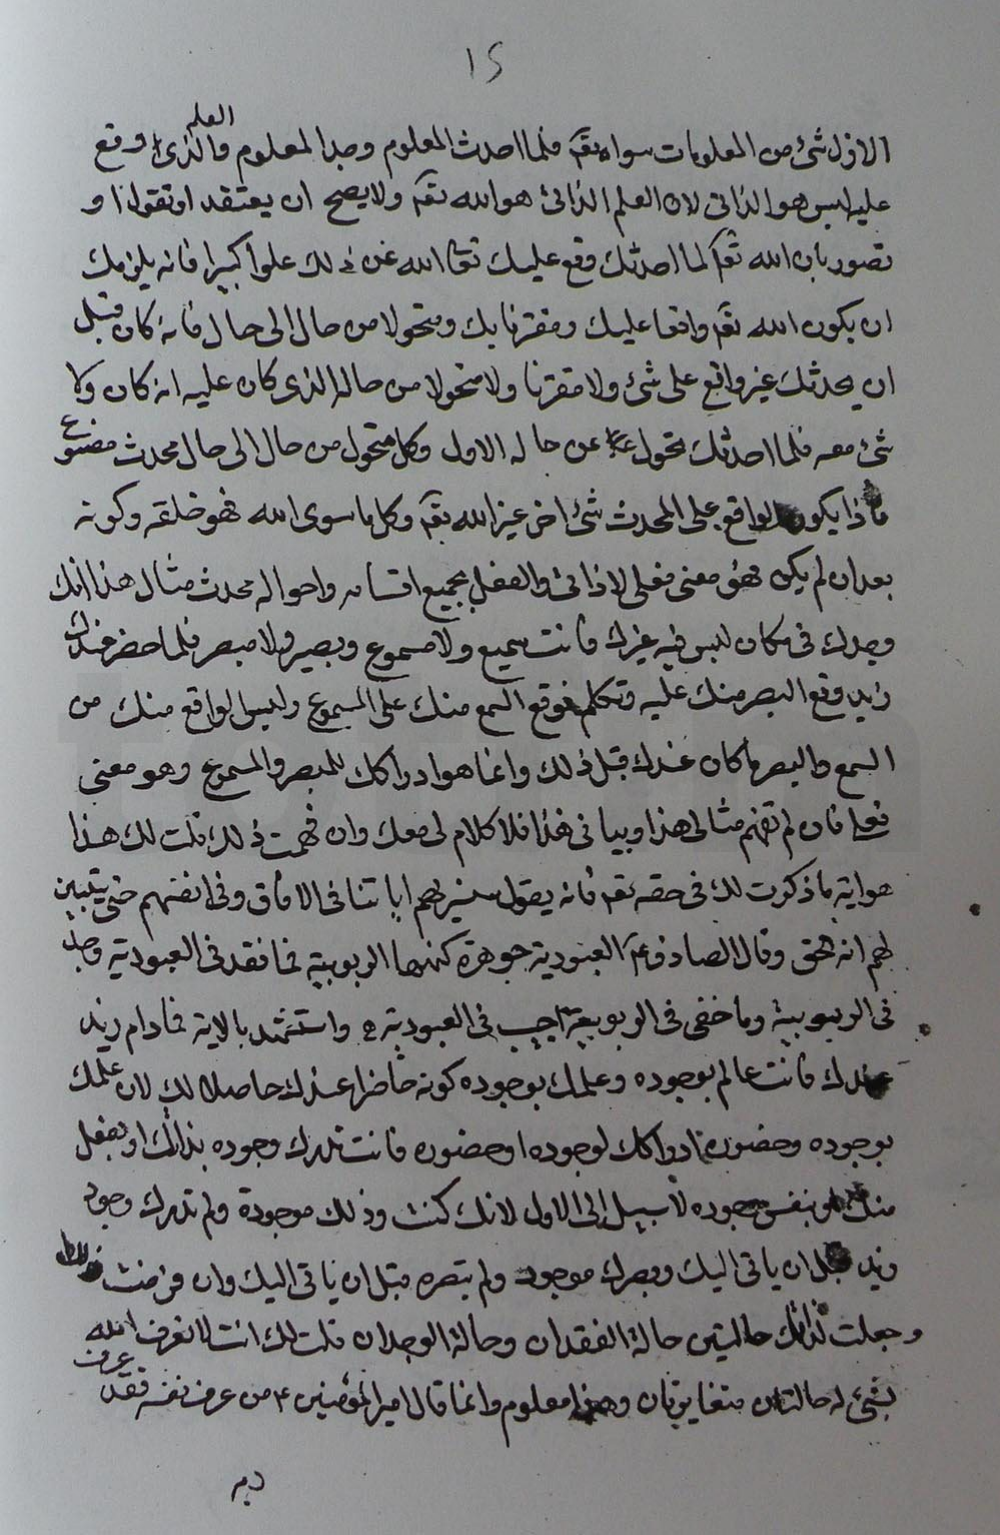 ١٤
العلم
الاول شئ من المعلومات سواه تعم فلما احدث المعلوم وجد المعلوم والذى وقع
عليه ليس هو الذاتى لان العلم الذاتى هو الله تعم ولا يصح ان يعتقد او تقول او
تصور بان الله تعم لما احدثك وقع عليك تعالى الله عن ذلك علوا كبيرا فانه يلزمك
ان يكون الله تعم واقعا عليك ومقترنا بك ومتحولا من حال الى حال فانه كان قبل
ان يحدثك غير واقع على شئ ولا مقترنا ولا متحولا من حاله الذى كان عليه انه كان ولا
شئ معه فلما احدثك تحول عن حاله الاول وكل متحول من حال الى حال محدث مصنوع
فاذا يكون الواقع على المحدث شئ اخر غير الله تعم وكل ما سوى الله فهو خلقه وكونه
بعد ان لم يكن فهو معنى فعلى لا ذاتى والفعل بجميع اقسامه واحواله محدث مثال هذا انك
وحدك فى مكان ليس فيه غيرك فانت سميع ولا مسموع وبصير ولا مبصر فلما حضر عندك
زيد وقع البصر منك عليه وتكلم فوقع السمع منك على المسموع وليس الواقع منك من
السمع والبصر ما كان عندك قبل ذلك وانما هو ادراكك للمبصر والمسموع وهو معنى
فعلى فان لم تفهم مثالى هذا وبيانى هذا فلا كلام لى معك وان فهمت ذلك قلت لك هذا
هو اية ما ذكرت لك فى حقه تعم فانه يقول سنريهم اياتنا فى الافاق وفى انفسهم حتى يتبين
لهم انه الحق وقال الصادق ع العبودية جوهرة كنهها الربوبية فما فقد فى العبودية وجد
فى الربوبية وما خفى فى الربوبية اصيب فى العبودية واستشهد بالاية فما دام زيد
عندك فانت عالم بوجوده وعلمك بوجوده كونه حاضرا عندك حاصلا لك لان علمك
بوجوده وحضوره ادراكك لوجوده وحضوره فانت تدرك وجوده بذاتك او بفعل
منك او بنفس وجوده لا سبيل الى الاول لانك كنت وذلك موجودة ولم تدرك وجود
زيد قبل ان ياتى اليك وبصرك موجود ولم تبصره قبل ان ياتى اليك وان فرضت
وجعلت لذاتك حالتين حالة الفقدان وحالة الوجدان قلت لك انت لا تعرف الله
بشئ له حالتان متغايرتان وهذا معلوم وانما قال امير المؤمنين ع من عرف نفسه فقد عرف